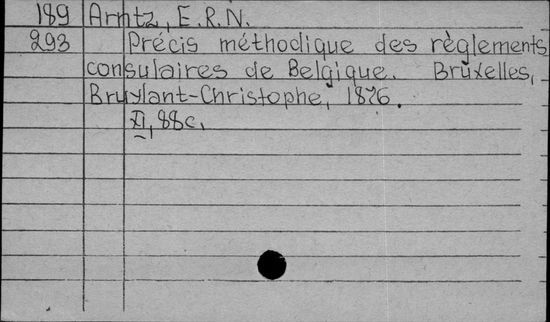 189 Arntz, E.R.N.
293 Précis méthodique des règlements
consulaires de Belgique. Bruxelles,
Bruylant-Christophe, 1876.
XI, 88 c.